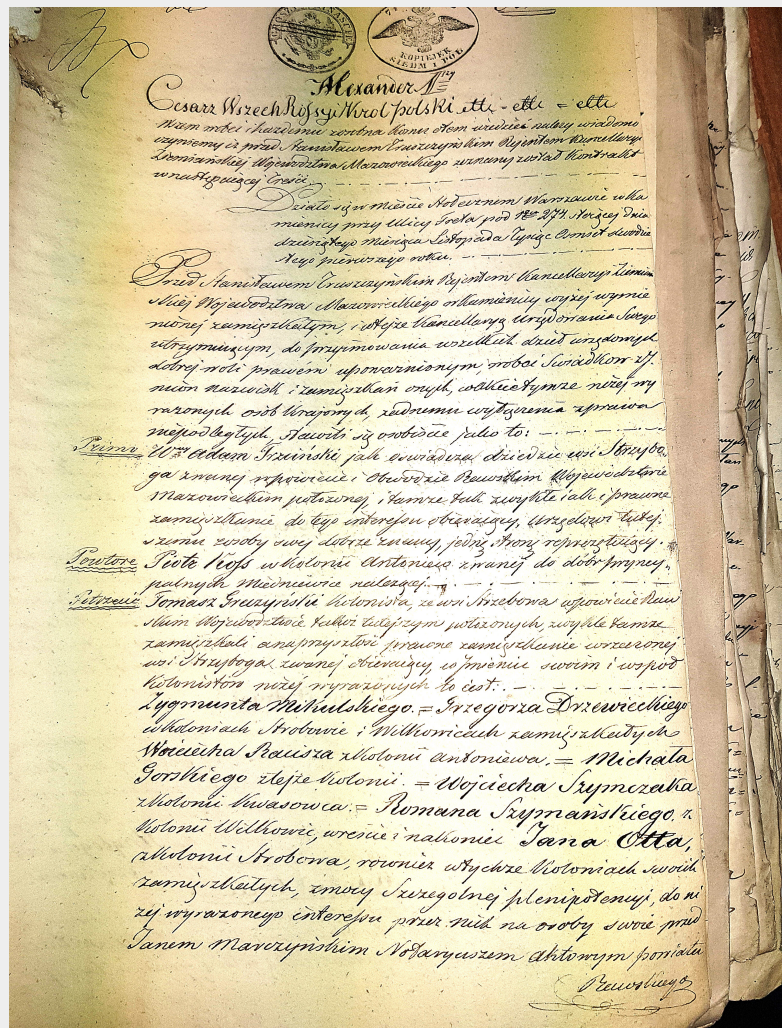 KOPIEJEK
SIEDM I PÓŁ
Alexander I
Cesarz Wszech Rossyi Król Polski etc - etc = etc
Wam wobec i każdemu z osobna komu o tem wiedzieć należy wiadomo
czyniemy iż przed Stanisławem Truszczyńskim Rejentem Kancellaryi
Ziemiańskiéy Województwa Mazowieckiego zeznany został Kontrakt
w następującey treści
Działo się w Mieście Stołecznem Warszawie w Ka
mienicy przy Ulicy Freta pod No 274 stojącey dnia
dziesiątego Miesiąca Listopada Tysiąc Osmset dwudzie
stego pierwszego roku.
Przed Stanisławem Truszczyńskim Rejentem Kancellaryi Ziemiań
skiéy Województwa Mazowieckiego w Kamienicy wyżej wymie
nionéy zamięszkałym, i w teyże Kancellaryą Urzędowania Swego
utrzymuiącym, do przyimowania wszelkich dzieł urzędowych
dobréy woli prawem upoważnionym, wobec Świadków z I
mion nazwisk i zamięszkań onych, w akcie tymże niżey wy
rażonych osób Krajowych, żadnemu wyłączeniu z prawa
niepodległych stawili się osobiście jako to:
Primo Wny Adam Trzciński jak oświadcza dziedzic wsi Strzybo
ga zwaney w powiecie i Obwodzie Rawskim Województwie
Mazowieckim położoney i tamże tak zwykłe iak i prawne
zamięszkanie do tego interessu obieraiący, Urzędowi tutey
szemu z osoby swey dobrze znany, jednę stronę reprezentuiący.
Powtóre Piotr Kofs w Kolonii Antoniew zwaney do dóbr pryncy
palnych Miedniewice należącey.
Potrzecie Tomasz Gruzyński Kolonista, ze wsi Strzebowa w powiecie Raw
skim Województwie takoż tuteyszym położonych, zwykle tamże
zamięszkali a na przyszłość prawne zamięszkanie w rzeczoney
wsi Strzyboga zwaney obieraiący, w Imieniu swoim i współ
Kolonistów niżey wyrażonych to iest:
Zygmunta Mikulskiego = Grzegorza Drzewieckiego
w Koloniach Strobowie i Wilkowicach zamięszkałych
Woyciecha Rausza z Kolonii Antoniewa. = Michała
Gorskiego z teyże Kolonii. = Wojciecha Szymczaka
z Kolonii Kwasowca. = Romana Szymańskiego z
Kolonii Wilkowic, wreście i nakoniec Jana Otta,
z Kolonii Strobowa, również w tychże Koloniach swoich
zamięszkałych, z mocy Szczególney plenipotencyi, do ni
żey wyrażonego interessu przez nich na osoby swoie przed
Janem Marczyńskim Notaryuszem Aktowym powiatu
Rawskiego